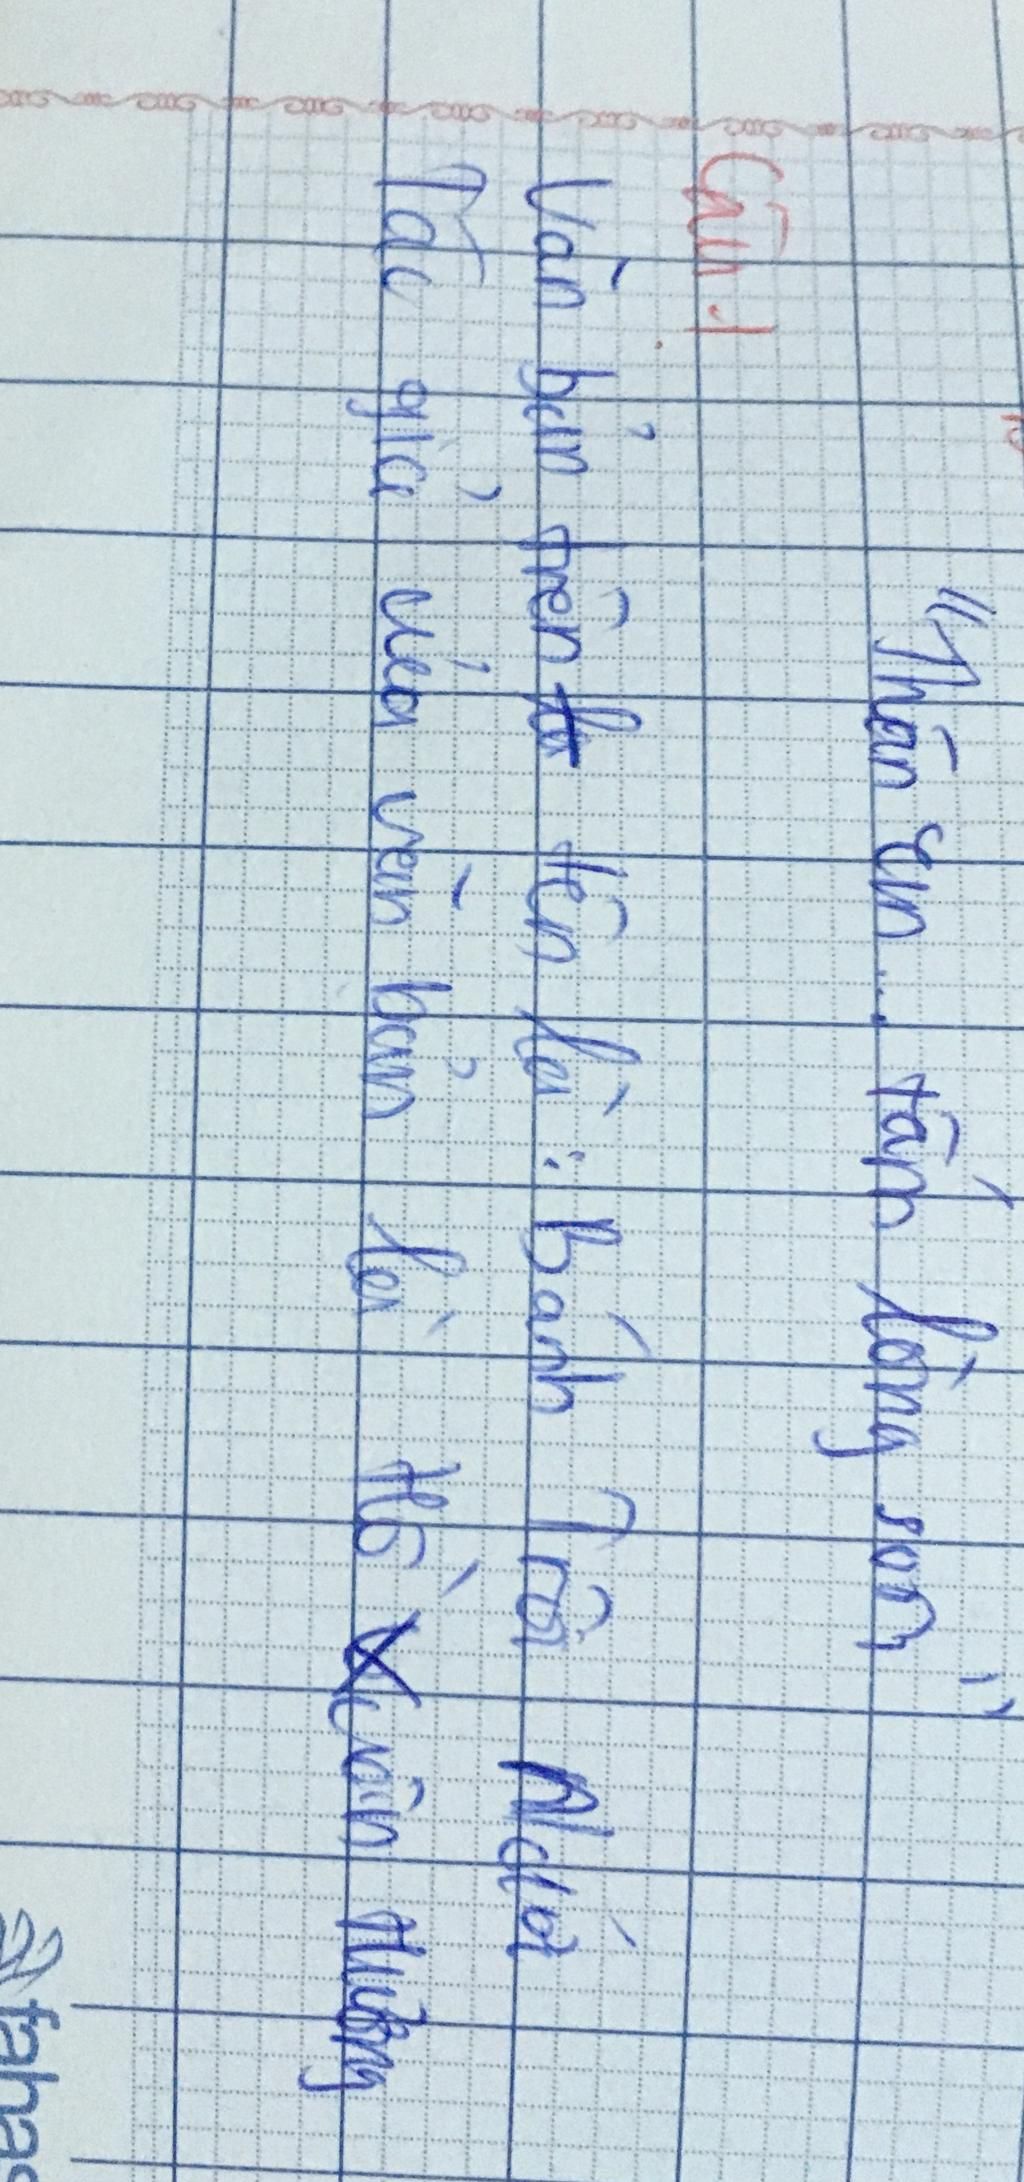 "Thân em... tấm lòng son"
Câu 1.
Văn bản trên tên là: Bánh Trôi Nước
Tác giả của văn bản là Hồ Xuân Hương
fahas